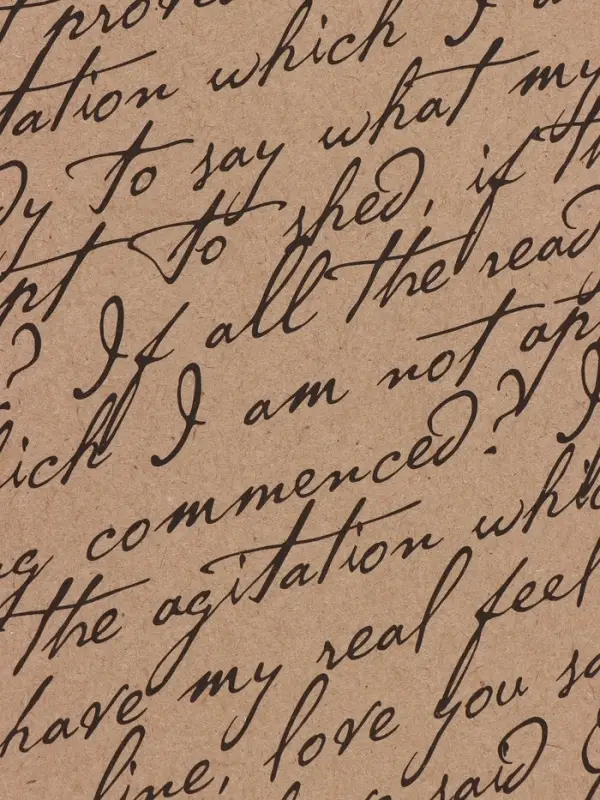 t prov
tation which I a
dy to say what my
pt to shed, if th
? If all the read
hich I am not ap
ng commenced? I
the agitation whic
have my real feel
line, love you sa
said